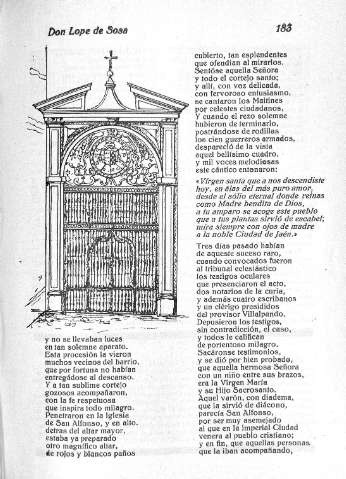 Don Lope de Sosa
183
y no se llevaban luces
en tan solemne aparato.
Esta procesión la vieron
muchos vecinos del barrio,
que por fortuna no habían
entregádose al descanso.
Y a tan sublime cortejo
gozosos acompañaron,
con la fe respetuosa
que inspira todo milagro.
Penetraron en la Iglesia
de San Alfonso, y en alto,
detras del altar mayor,
estaba ya preparado
otro magnífico altar,
de rojos y blancos paños
cubierto, tan esplendentes
que ofendían al mirarlos.
Sentóse aquella Señora
y todo el cortejo santo;
y allí, con voz delicada,
con fervoroso entusiasmo,
se cantaron los Maitines
por celestes ciudadanos.
Y cuando el rezo solemne
hubieron de terminarlo,
postrándose de rodillas
los cien guerreros armados,
despareció de la vista
aquel bellísimo cuadro,
y mil voces melodiosas
este cántico entonaron:
«Virgen santa que a nos descendiste
hoy, en días del más puro amor,
desde el sólio eternal donde reinas
como Madre bendita de Dios,
a tu amparo se acoge este pueblo
que a tus plantas sirvió de escabel;
mira siempre con ojos de madre
a la noble Ciudad de Jaén.»
Tres días pasado habían
de aqueste suceso raro,
cuando convocados fueron
al tribunal eclesiástico
los testigos oculares
que presenciaron el acto,
dos notarios de la curia,
y además cuatro escribanos
y un clérigo presididos
del provisor Villalpando.
Depusieron los testigos,
sin contradicción, el caso,
y todos le califican
de portentoso milagro.
Sacáronse testimonios,
y se dió por bien probado,
que aquella hermosa Señora
con un niño entre sus brazos,
era la Virgen María
y su Hijo Sacrosanto.
Aquel varón, con diadema,
que la sirvió de diácono,
parecía San Alfonso,
por ser muy asemejado
al que en la Imperial Ciudad
venera al pueblo cristiano;
y en fin, que aquellas personas
que la iban acompañando,